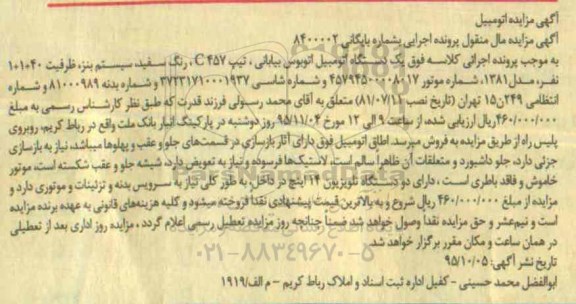 آگهی مزایده اتومبیل
آگهی مزایده مال منقول پرونده اجرایی بشماره بایگانی ۸۴۰۰۰۰۲
به موجب پرونده اجرائی کلاسه فوق یک دستگاه اتومبیل اتوبوس بیابانی ، تیپ C۴۵۷ ، رنگ سفید، سیستم بنز، ظرفیت ۱+۱+۴۰
نفر، مدل۱۳۸۱، شماره موتور ۴۵۷۹۴۵۰۰۰۸۰۱۷ و شماره شاسی ۳۷۲۳۱۷۱۰۰۰۱۹۳۷ و شماره بدنه ۸۱۰۰۰۹۸۹ و شماره
انتظامی ۲۴۹ن۱۵ تهران (تاریخ نصب ۸۱/۰۷/۱۱) متعلق به آقای محمد رسولی فرزند قدرت که طبق نظر کارشناس رسمی به مبلغ
۴۶۰/۰۰۰/۰۰۰ریال ارزیابی شده، از ساعت ۹ الی ۱۲ مورخ ۹۵/۱۱/۰۴ روز دوشنبه در پارکینگ انبار بانک ملت واقع در رباط کریم، روبروی
پلیس راه از طریق مزایده به فروش میرسد. اطاق اتومبیل فوق دارای آثار بازسازی در قسمت‌های جلو و عقب و پهلوها میباشد، نیاز به بازسازی
جزئی دارد، جلو داشبورد و متعلقات آن ظاهرا سالم است، لاستیک‌ها فرسوده و نیاز به تعویض دارد، شیشه جلو و عقب شکسته است، موتور
خاموش و فاقد باطری است ، دارای دو دستگاه تلویزیون ۱۴ اینچ در داخل، به طور کلی نیاز به سرویس بدنه و تزئینات و موتوری دارد و
مزایده از مبلغ ۴۶۰/۰۰۰/۰۰۰ ریال شروع و به بالاترین قیمت پیشنهادی نقدا فروخته میشود و کلیه هزینه‌های قانونی به عهده برنده مزایده
است و نیم‌عشر و حق مزایده نقدا وصول خواهد شد ضمناً چنانچه روز مزایده تعطیل رسمی اعلام گردد ، مزایده روز اداری بعد از تعطیلی
در همان ساعت و مکان مقرر برگزار خواهد شد.
تاریخ نشر آگهی: ۹۵/۱۰/۰۵
ابوالفضل محمد حسینی - کفیل اداره ثبت اسناد و املاک رباط کریم - م الف/۱۹۱۹
۰۲۱-۸۸۳۴۹۶۷۰-۵